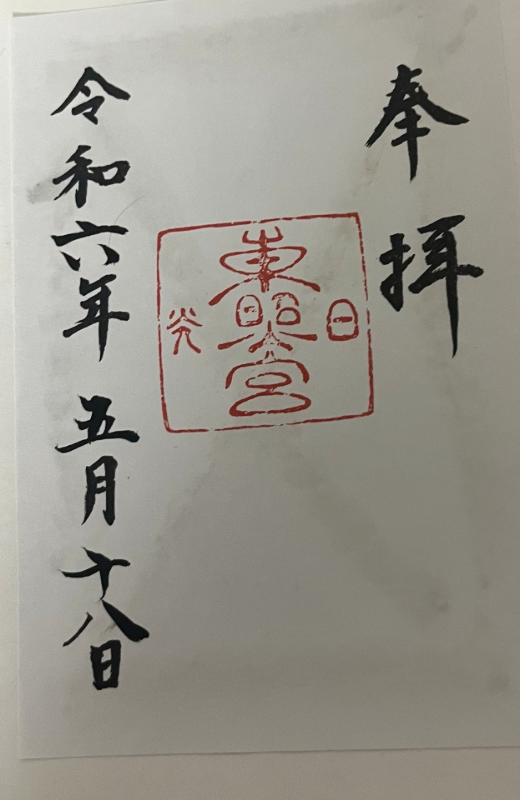 奉拝
日光
東照宮
令和六年 五月十八日